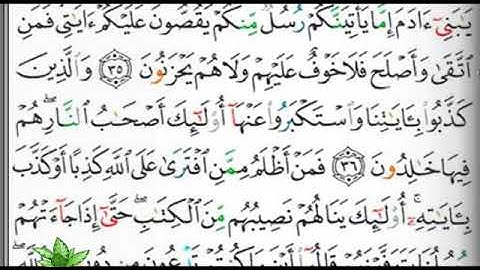 يَـٰبَنِىٓ ءَادَمَ إِمَّا يَأْتِيَنَّكُمْ رُسُلٌ مِّنكُمْ يَقُصُّونَ عَلَيْكُمْ ءَايَـٰتِى فَمَنِ
ٱتَّقَىٰ وَأَصْلَحَ فَلَا خَوْفٌ عَلَيْهِمْ وَلَا هُمْ يَحْزَنُونَ ٣٥ وَٱلَّذِينَ
كَذَّبُوا۟ بِـَٔايَـٰتِنَا وَٱسْتَكْبَرُوا۟ عَنْهَآ أُو۟لَـٰٓئِكَ أَصْحَـٰبُ ٱلنَّارِ ۖ هُمْ
فِيهَا خَـٰلِدُونَ ٣٦ فَمَنْ أَظْلَمُ مِمَّنِ ٱفْتَرَىٰ عَلَى ٱللَّهِ كَذِبًا أَوْ كَذَّبَ
بِـَٔايَـٰتِهِۦٓ ۚ أُو۟لَـٰٓئِكَ يَنَالُهُمْ نَصِيبُهُم مِّنَ ٱلْكِتَـٰبِ ۖ حَتَّىٰٓ إِذَا جَآءَتْهُمْ